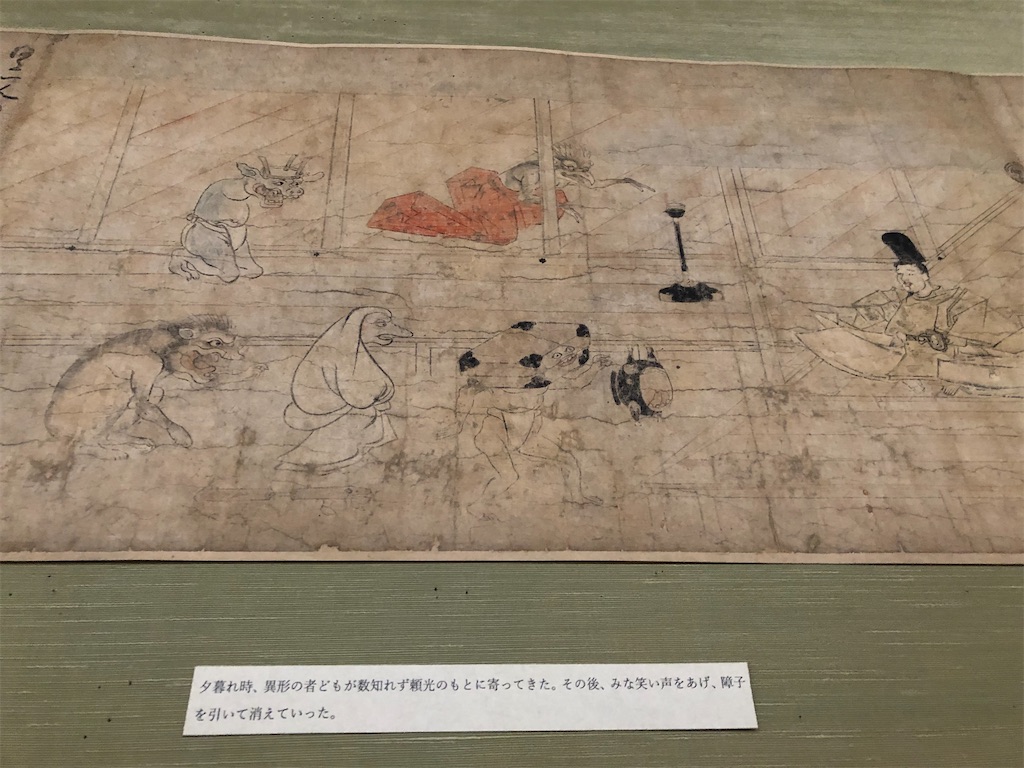 夕暮れ時、異形の者どもが数知れず頼光のもとに寄ってきた。その後、みな笑い声をあげ、障子
を引いて消えていった。